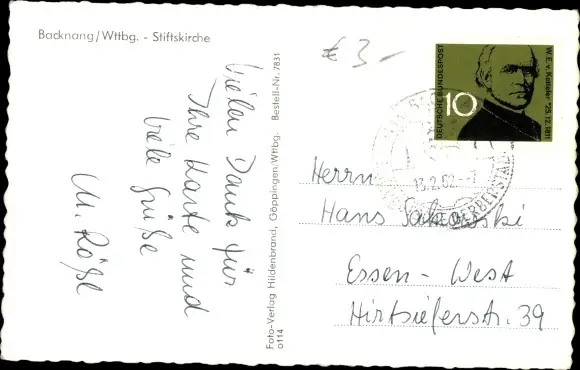 Backnang/Wttbg. - Stiftskirche
€ 3 -
Vielen Dank für
Ihre Karte und
viele Grüße
M. Rößl
Foto-Verlag Hildenbrand, Göppingen/Wttbg. Bestell-Nr. 7831
0114
DEUTSCHE BUNDESPOST
10
W.E.v. Ketteler *25.12.1811
13.2.62.-7
GERBERSTADT
Herrn
Hans
Essen - West
Hirtsieferstr. 39